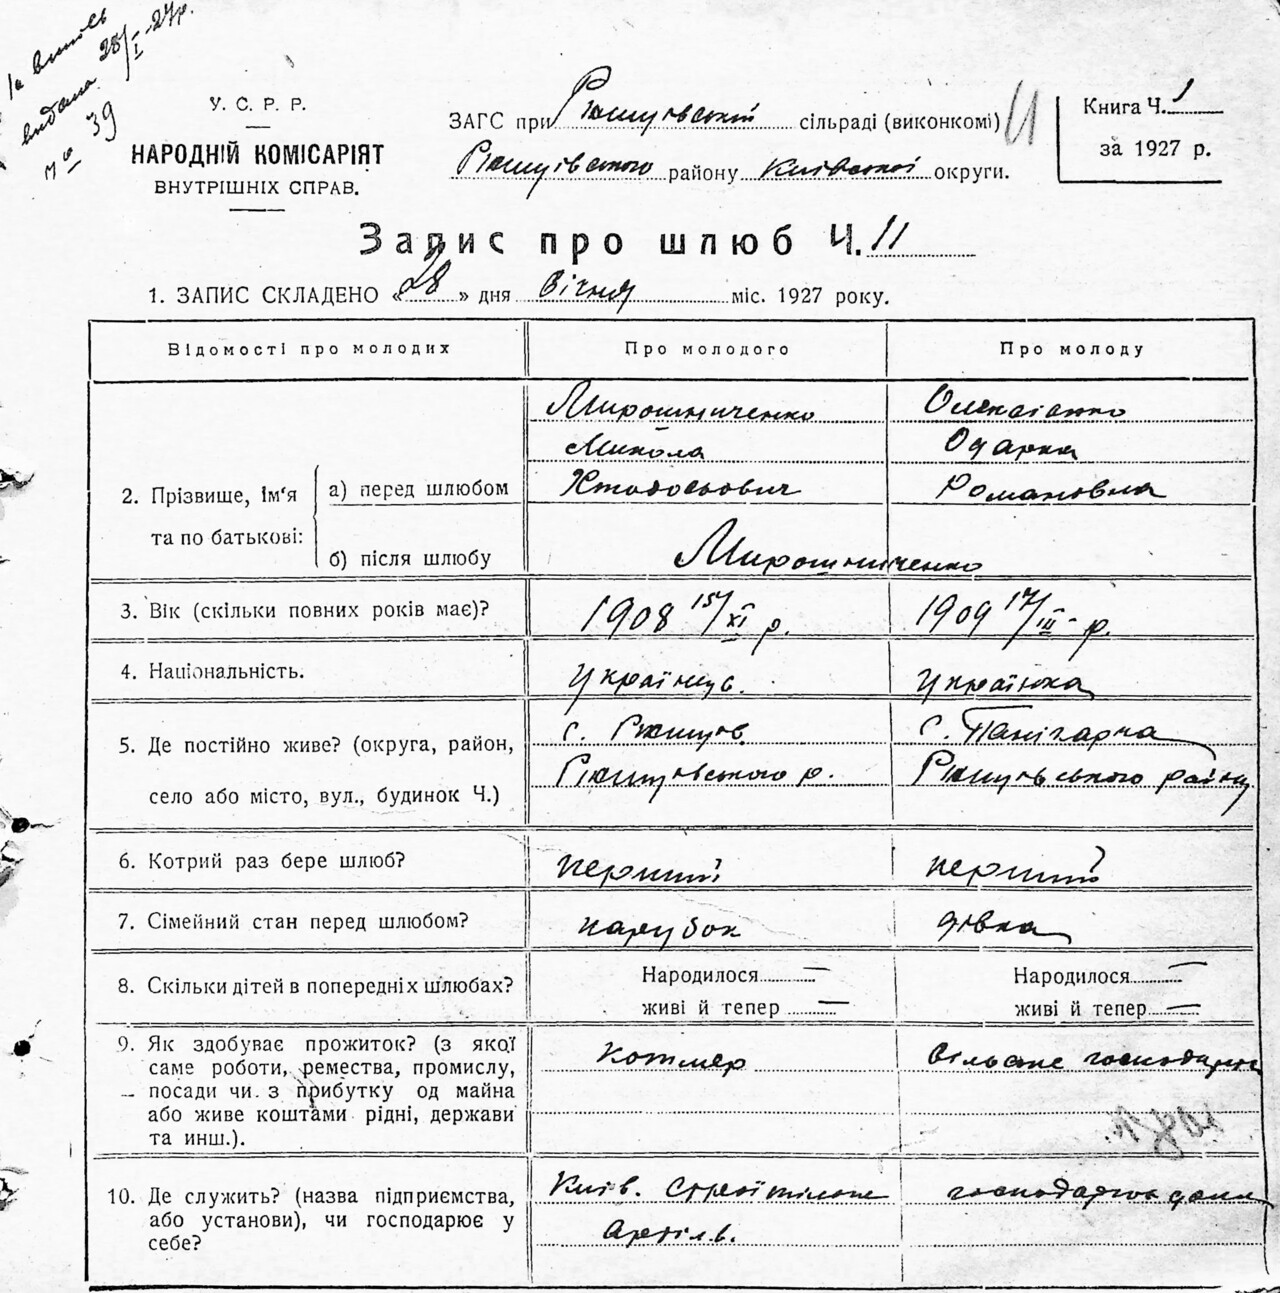 На виписъ
видана 28/I-27р.
№ 39
У. С. Р. Р.
НАРОДНІЙ КОМІСАРІЯТ
ВНУТРІШНІХ СПРАВ.
ЗАГС при Ржищівській сільраді (виконкомі)
Ржищівського району Київської округи.
11
Книга Ч. 1
за 1927 р.
Запис про шлюб Ч. 11
1. ЗАПИС СКЛАДЕНО « 28 » дня січня міс. 1927 року.
Відомості про молодих Про молодого Про молоду
2. Прізвище, ім‘я та по батькові:
а) перед шлюбом
Мирошниченко
Микола
Хтодосьович
Олексієнко
Одарка
Романовна
б) після шлюбу
Мирошниченко
3. Вік (скільки повних років має)? 1908 15/XI р. 1909 17/III - р.
4. Національність. українец. українка
5. Де постійно живе? (округа, район,
село або місто, вул., будинок Ч.)
с. Ржищів
Ржищівського р.
с. Панікарча
Ржищівського району
6. Котрий раз бере шлюб? перший перший
7. Сімейний стан перед шлюбом? парубок дівка
8. Скільки дітей в попередніх шлюбах?
Народилося —
живі й тепер —
Народилося —
живі й тепер —
9. Як здобуває прожиток? (з якої
саме роботи, ремества, промислу,
посади чи з прибутку од майна
або живе коштами рідні, держави
та инш.).
котляр
сільське господарство
10. Де служить? (назва підприємства,
або установи), чи господарює у
себе?
Київ. строїтільна
артіль.
господарює дома